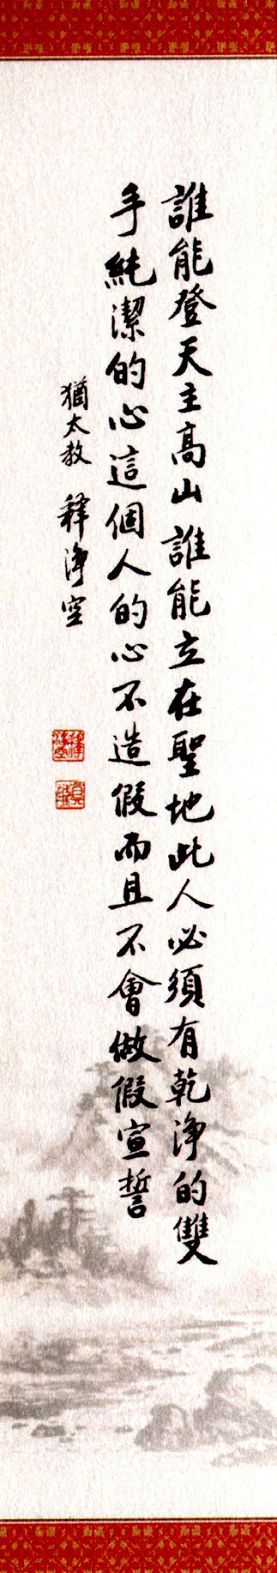 誰能登天主高山誰能立在聖地此人必須有乾淨的雙
手純潔的心這個人的心不造假而且不會做假宣誓
猶太教 釋淨空